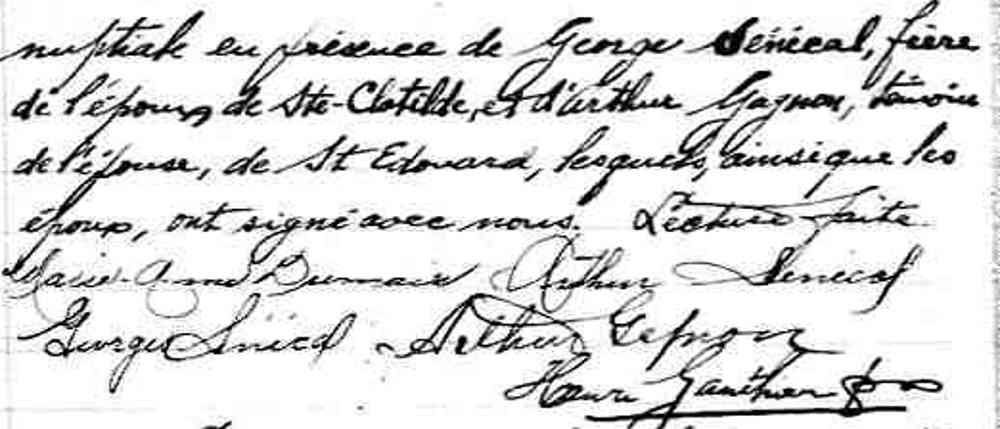 nuptiale en présence de George Sénécal, frère
de l'époux, de Ste-Clotilde, et d'Arthur Gagnon, témoin
de l'épouse, de St Edouard, lesquels, ainsi que les
époux, ont signé avec nous. Lecture faite.
Marie-Anna Dumais Arthur Senécal
Georges Sénécal Arthur Gagnon
Henri Gauthier ptre